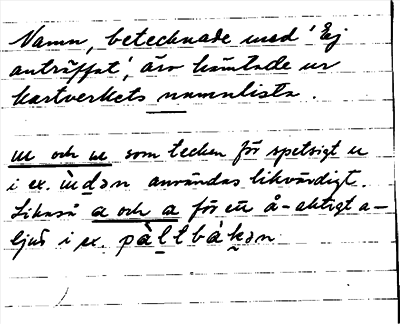 Namn, betecknade med 'Ej
anträffat', äro hämtade ur
kartverkets namnlista.
u och u som tecken för spetsigt u
i ex. ùdən användas likvärdigt.
Likaså a och a för ett å-aktigt a-
ljud i ex. pàllbàkən